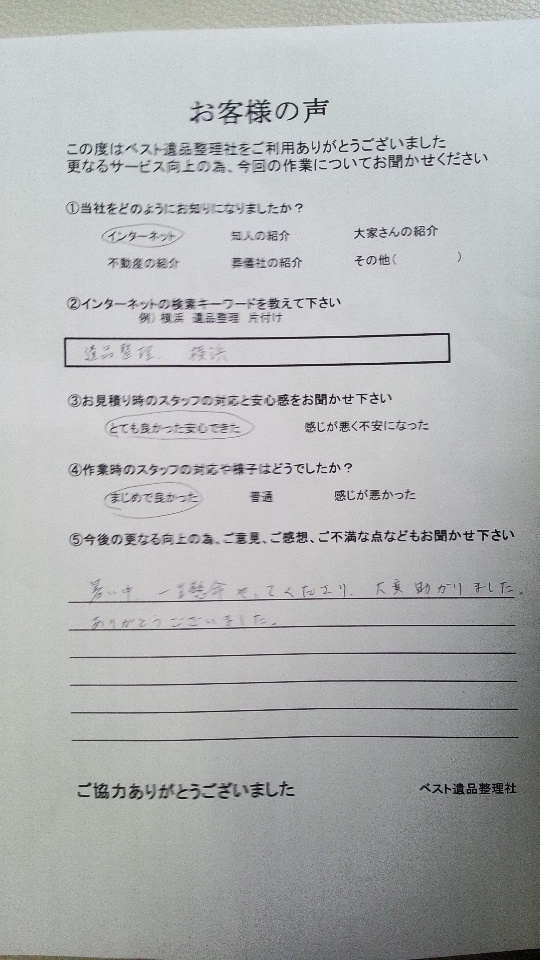 お客様の声
この度はベスト遺品整理社をご利用ありがとうございました
更なるサービス向上の為、今回の作業についてお聞かせください
①当社をどのようにお知りになりましたか？
インターネット 知人の紹介 大家さんの紹介
不動産の紹介 葬儀社の紹介 その他（ ）
②インターネットの検索キーワードを教えて下さい
例）横浜 遺品整理 片付け
遺品整理、 横浜
③お見積り時のスタッフの対応と安心感をお聞かせ下さい
とても良かった安心できた 感じが悪く不安になった
④作業時のスタッフの対応や様子はどうでしたか？
まじめで良かった 普通 感じが悪かった
⑤今後の更なる向上の為、ご意見、ご感想、ご不満な点などもお聞かせ下さい
暑い中、一生懸命やってくださり、大変助かりました。
ありがとうございました。
ご協力ありがとうございました
ベスト遺品整理社